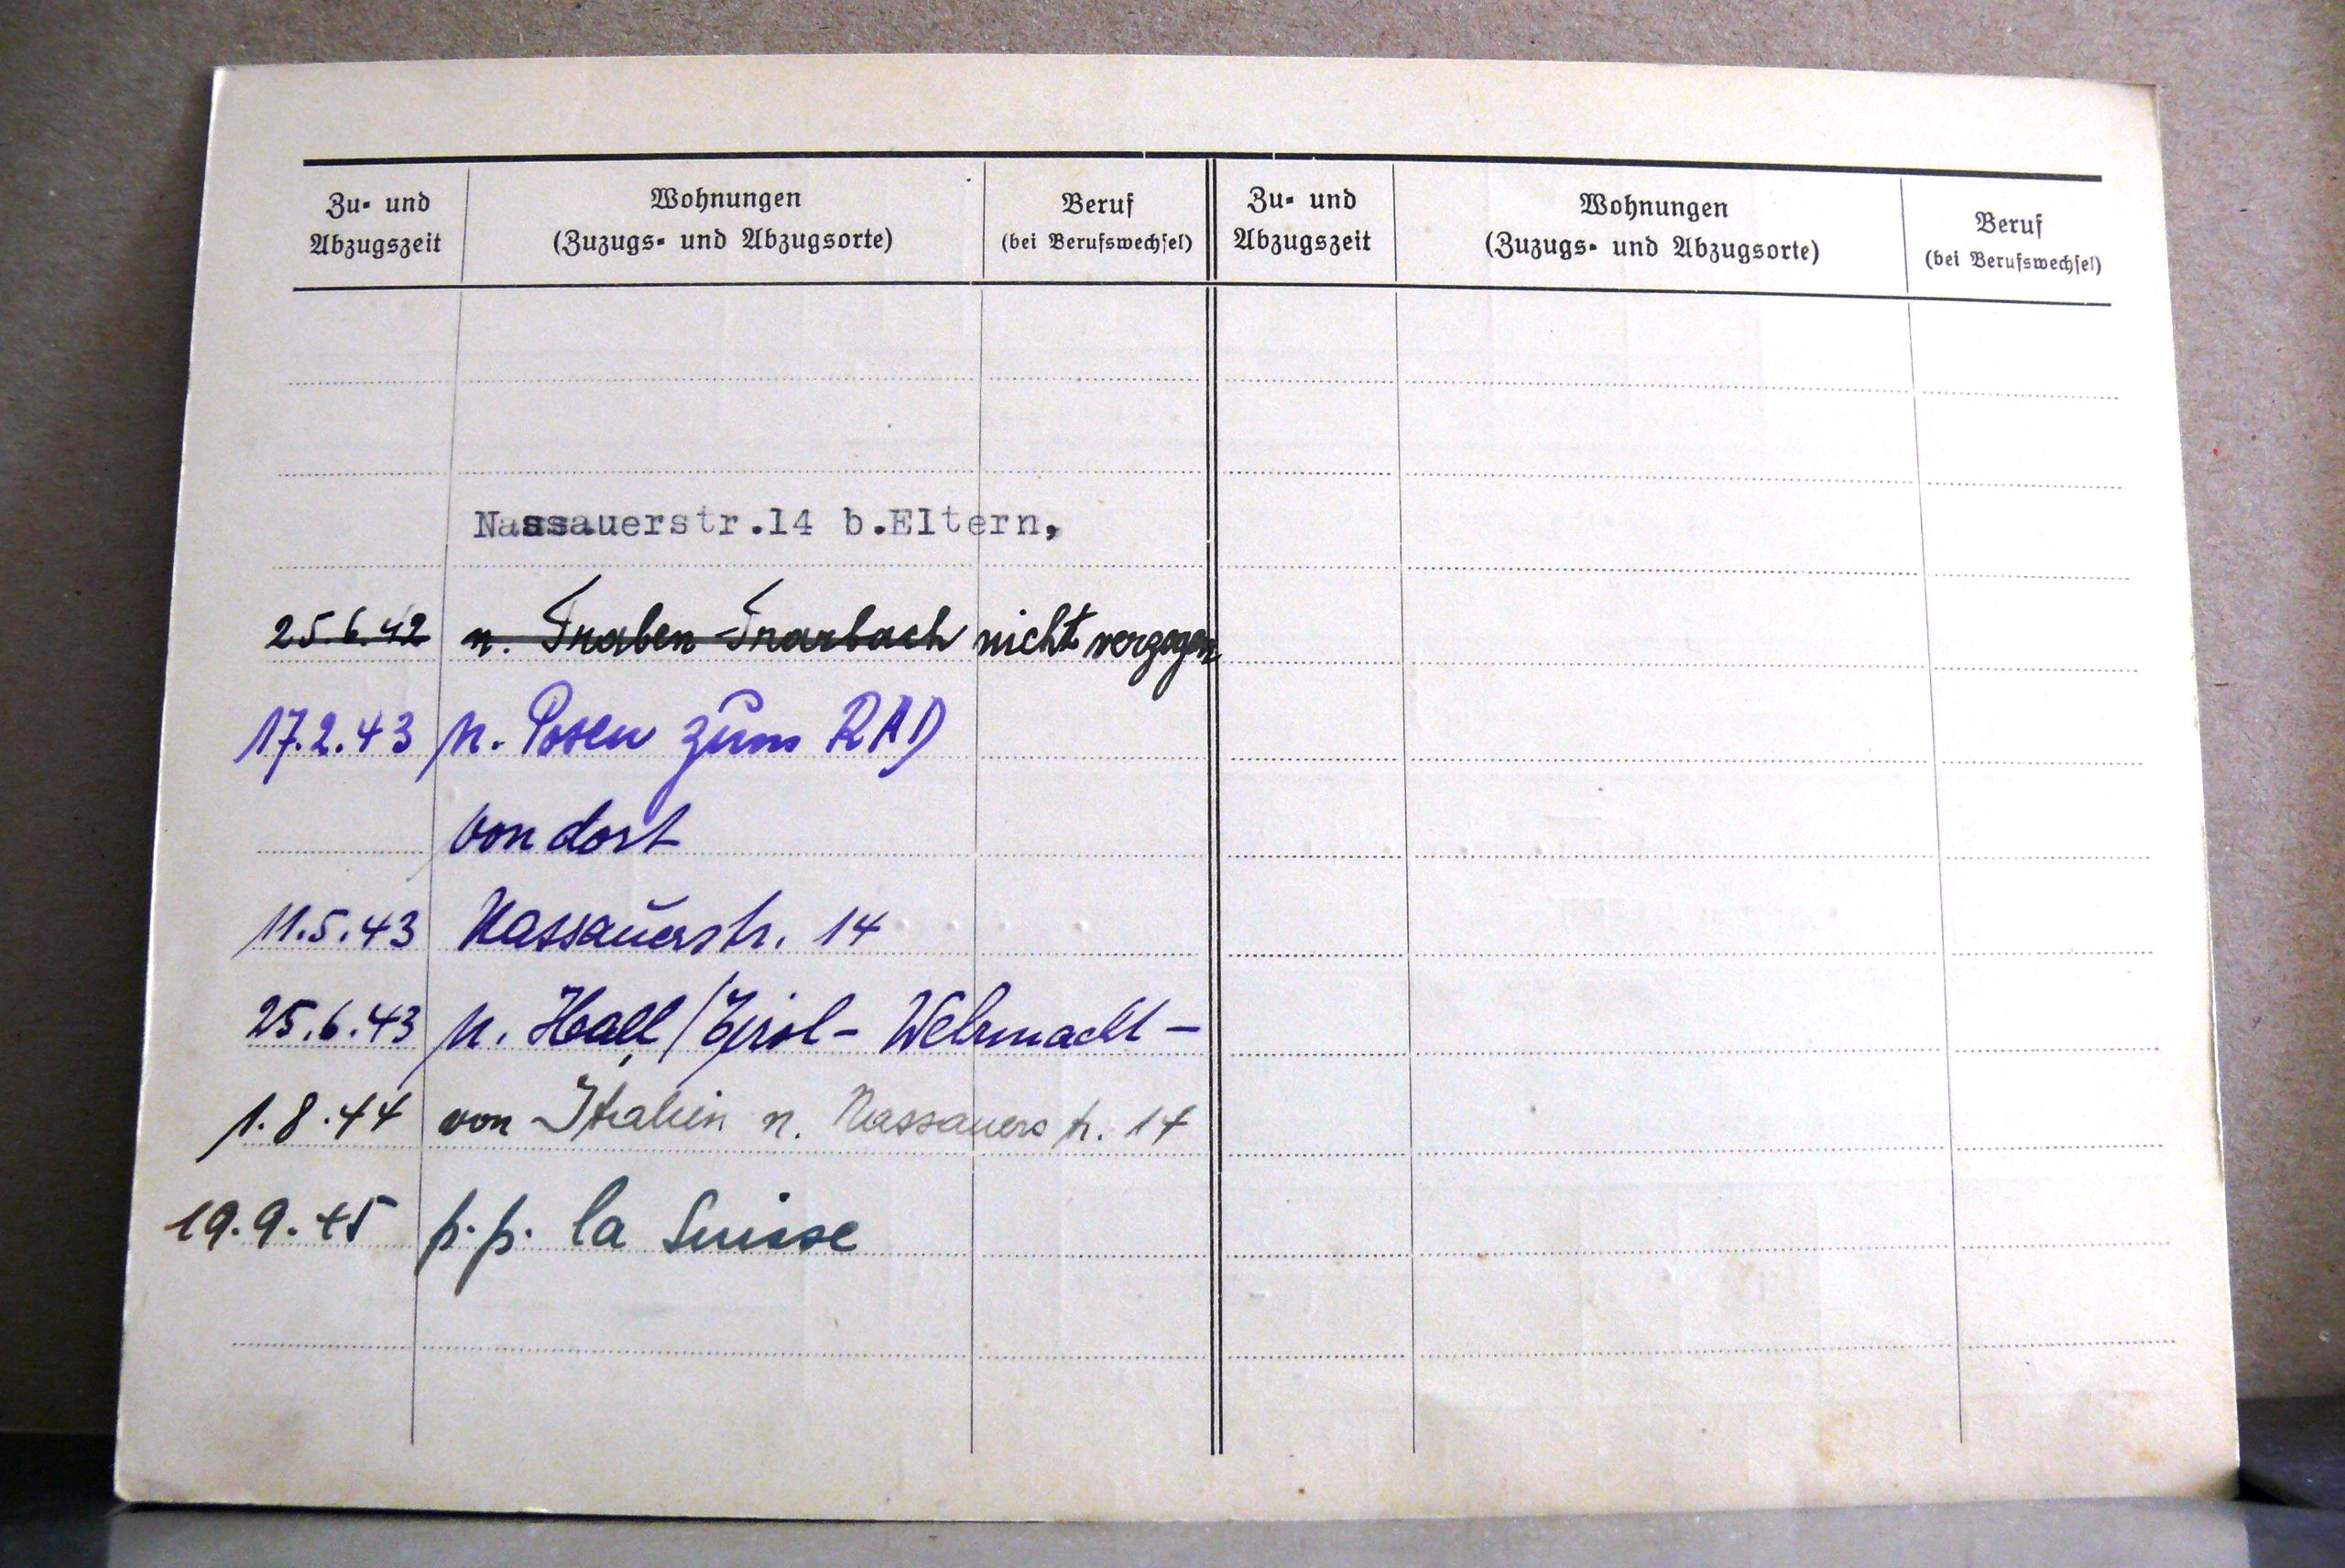 Zu- und
Abzugszeit
Wohnungen
(Zuzugs- und Abzugsorte)
Beruf
(bei Berufswechsel)
Zu- und
Abzugszeit
Wohnungen
(Zuzugs- und Abzugsorte)
Beruf
(bei Berufswechsel)
Nassauerstr.14 b.Eltern,
25.6.42 n. Traben-Trarbach nicht verzogen
17.2.43 n. Posen zum RAD
von dort
11.5.43 Nassauerstr. 14
25.6.43 n. Hall/Tirol - Wehrmacht -
1.8.44 von Italien n. Nassauerstr. 14
19.9.45 p.p. la Suisse